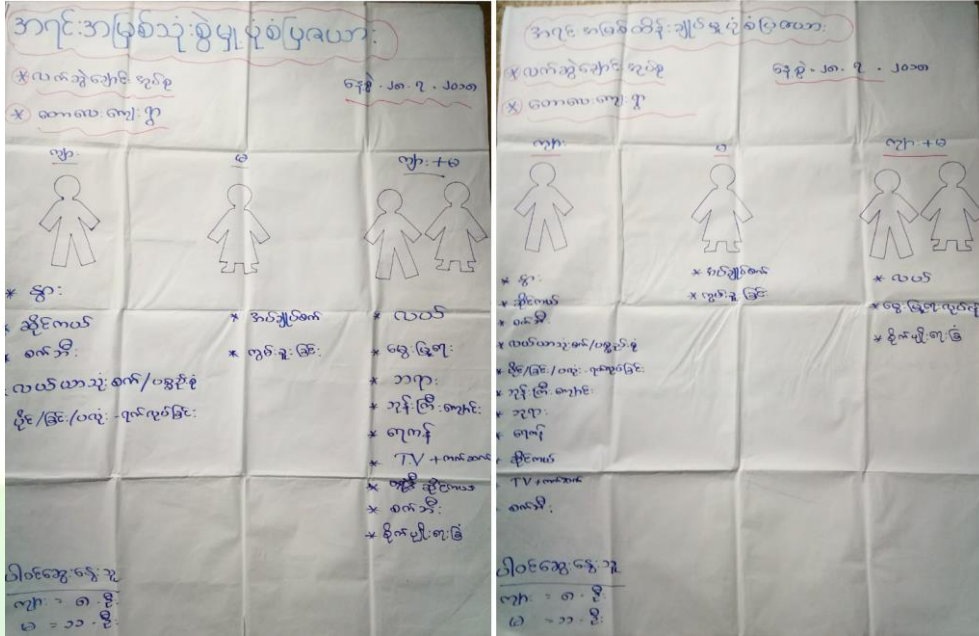 အရင်းအမြစ်သုံးစွဲမှုပုံစံပြဇယား
* လက်ဆွဲချောင်းအုပ်စု
နေ့စွဲ - ၂၈.၇.၂၀၁၈
* တောလေးကျေးရွာ
ကျား
မ
ကျား + မ
* နွား
* ဆိုင်ကယ်
* စက်ဘီး
* လယ်ယာသုံးစက်/ပစ္စည်းစုံ
ပိုင်/ခြင်း/ပလုံး-ရက်လုပ်ခြင်း
* အပ်ချုပ်စက်
* ကွမ်းယူခြင်း
* လယ်
* မွေးမြူရေး
* ဘုရား
* ဘုန်းကြီးကျောင်း
* ရေကန်
* TV + ကက်ဆက်
* ဆိုင်ကယ်
* စက်ဘီး
* စိုက်ပျိုးရေးခြံ
ပါဝင်ဆွေးနွေးသူ
ကျား = ၈ - ဦး
မ = ၁၁ - ဦး
အရင်းအမြစ်ထိန်းချုပ်မှုပုံစံပြဇယား
* လက်ဆွဲချောင်းအုပ်စု
နေ့စွဲ - ၂၈.၇.၂၀၁၈
* တောလေးကျေးရွာ
ကျား
မ
ကျား + မ
* နွား
* ဆိုင်ကယ်
* စက်ဘီး
* လယ်ယာသုံးစက်/ပစ္စည်းစုံ
* ပိုင်/ခြင်း/ပလုံး-ရက်လုပ်ခြင်း
* ဘုန်းကြီးကျောင်း
* ဘုရား
* ရေကန်
* ဆိုင်ကယ်
TV + ကက်ဆက်
စက်ဘီး
* အပ်ချုပ်စက်
* ကွမ်းယူခြင်း
* လယ်
* မွေးမြူရေးလုပ်ငန်း
* စိုက်ပျိုးရေးခြံ
ပါဝင်ဆွေးနွေးသူ
ကျား = ၈ - ဦး
မ = ၁၁ - ဦး